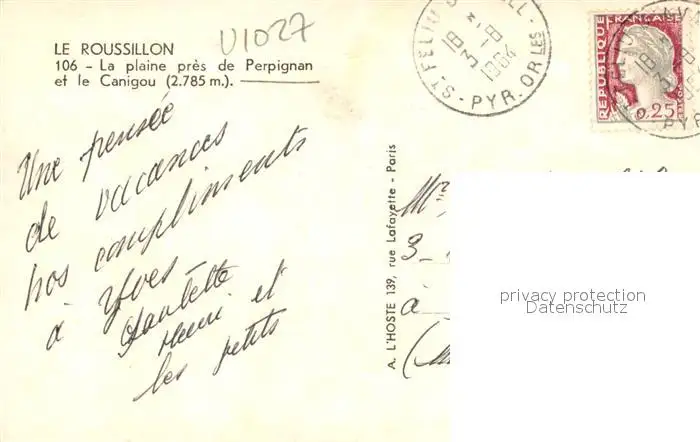 LE ROUSSILLON
U1027
106 - La plaine près de Perpignan
et le Canigou (2.785 m.).
Une pensée
de vacances
nos compliments
à Yves
Henri et
les petits
A. L'HOSTE 139, rue Lafayette - Paris
ST FELIU
18 H
3 - 8
1964
PYR. OR LES
REPUBLIQUE FRANÇAISE
0,25
18 H
PYR
3
à
privacy protection
Datenschutz